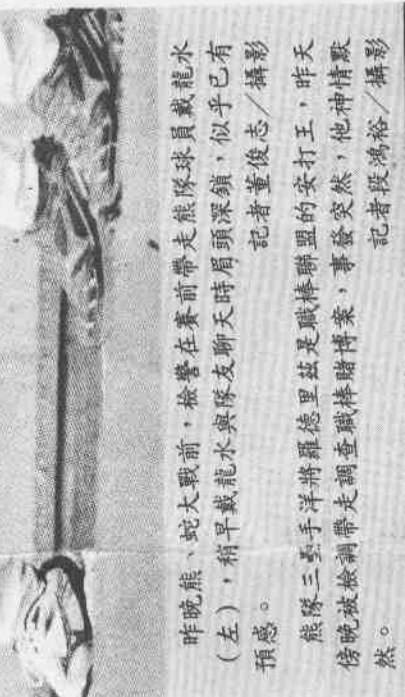 昨晚熊、蛇大戰前，檢警在賽前帶走熊隊球員戴龍水
（左），稍早戴龍水與隊友聊天時眉頭深鎖，似乎已有
預感。
記者董俊志／攝影
熊隊三壘手洋將羅德里茲是職棒聯盟的安打王，昨天
傍晚被檢調帶走調查職棒賭博案，事發突然，他神情默
然。
記者段鴻裕／攝影